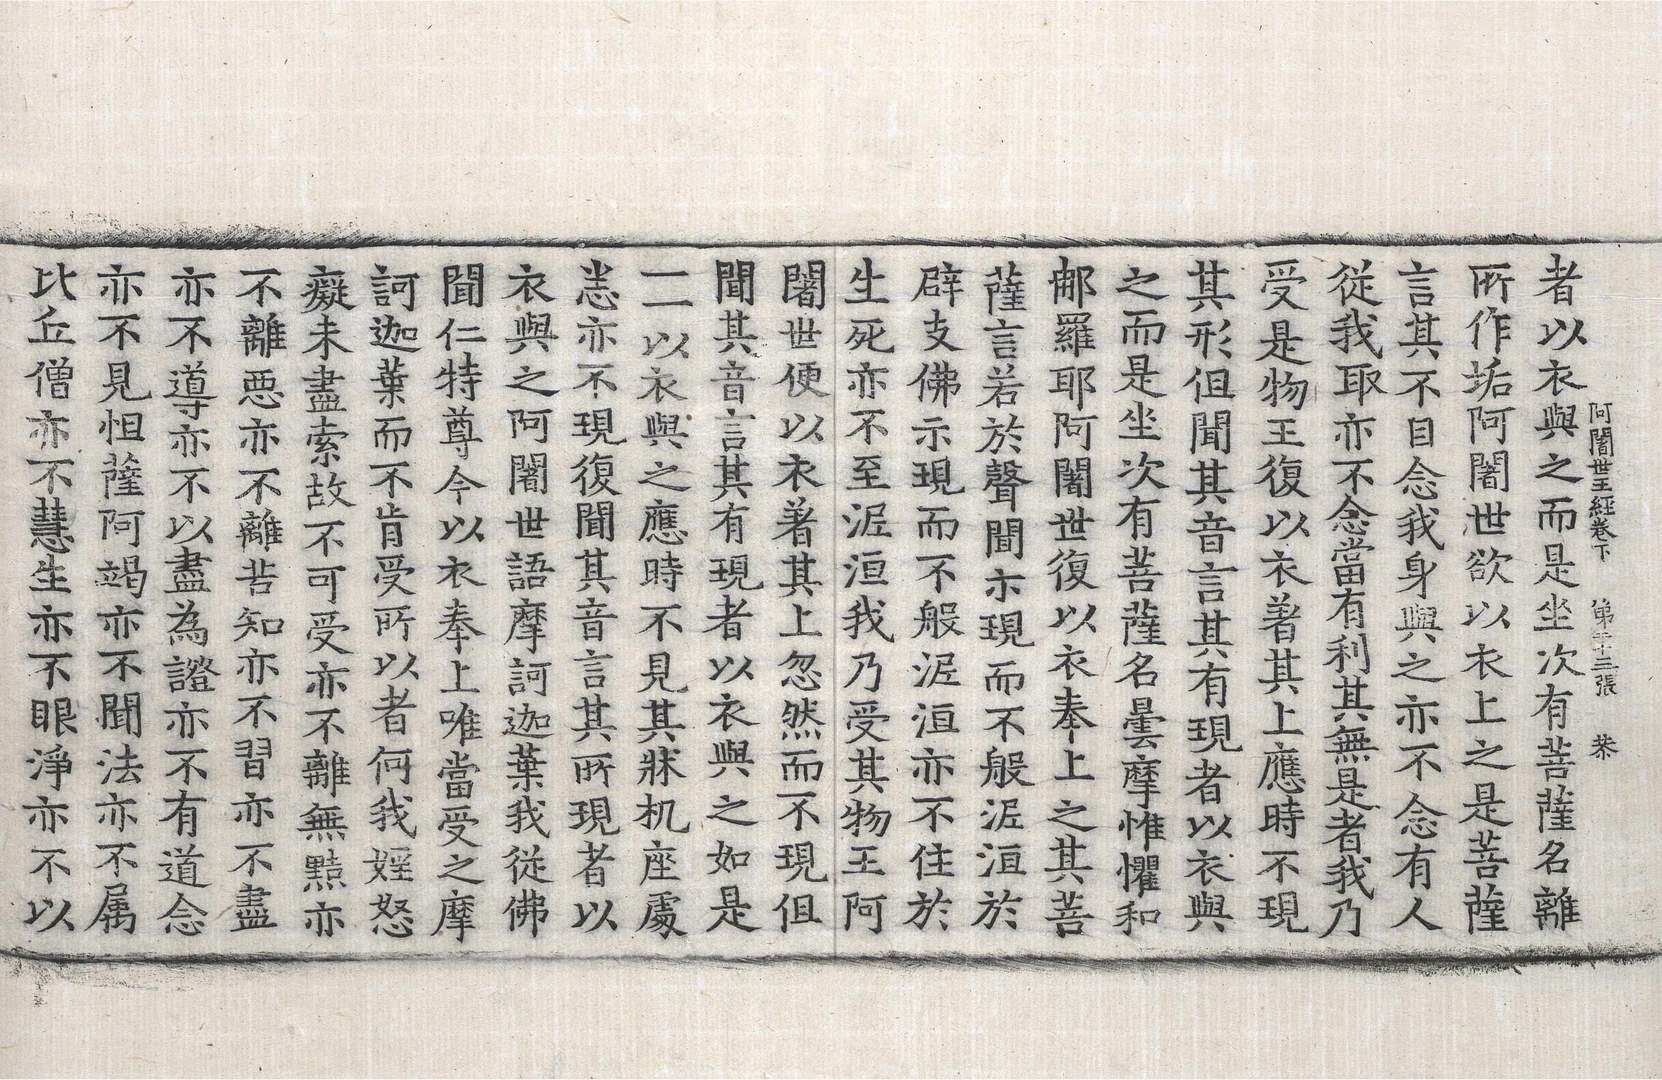 阿闍世王經卷下 第十三張 恭
者以衣與之而是坐次有菩薩名離
所作垢阿闍世欲以衣上之是菩薩
言其不自念我身與之亦不念有人
從我取亦不念當有利其無是者我乃
受是物王復以衣著其上應時不現
其形但聞其音言其有現者以衣與
之而是坐次有菩薩名曇摩惟懼和
那羅耶阿闍世復以衣奉上之其菩
薩言若於聲聞示現而不般泥洹於
辟支佛示現而不般泥洹亦不住於
生死亦不至泥洹我乃受其物王阿
闍世便以衣著其上忽然而不現但
聞其音言其有現者以衣與之如是
一一以衣與之應時不見其牀机座處
悉亦不現復聞其音言其所現者以
衣與之阿闍世語摩訶迦葉我從佛
聞仁特尊今以衣奉上唯當受之摩
訶迦葉而不肯受所以者何我婬怒
癡未盡索故不可受亦不離無黠亦
不離惡亦不離苦知亦不習亦不盡
亦不導亦不以盡為證亦不有道念
亦不見怛薩阿竭亦不聞法亦不属
比丘僧亦不慧生亦不眼淨亦不以